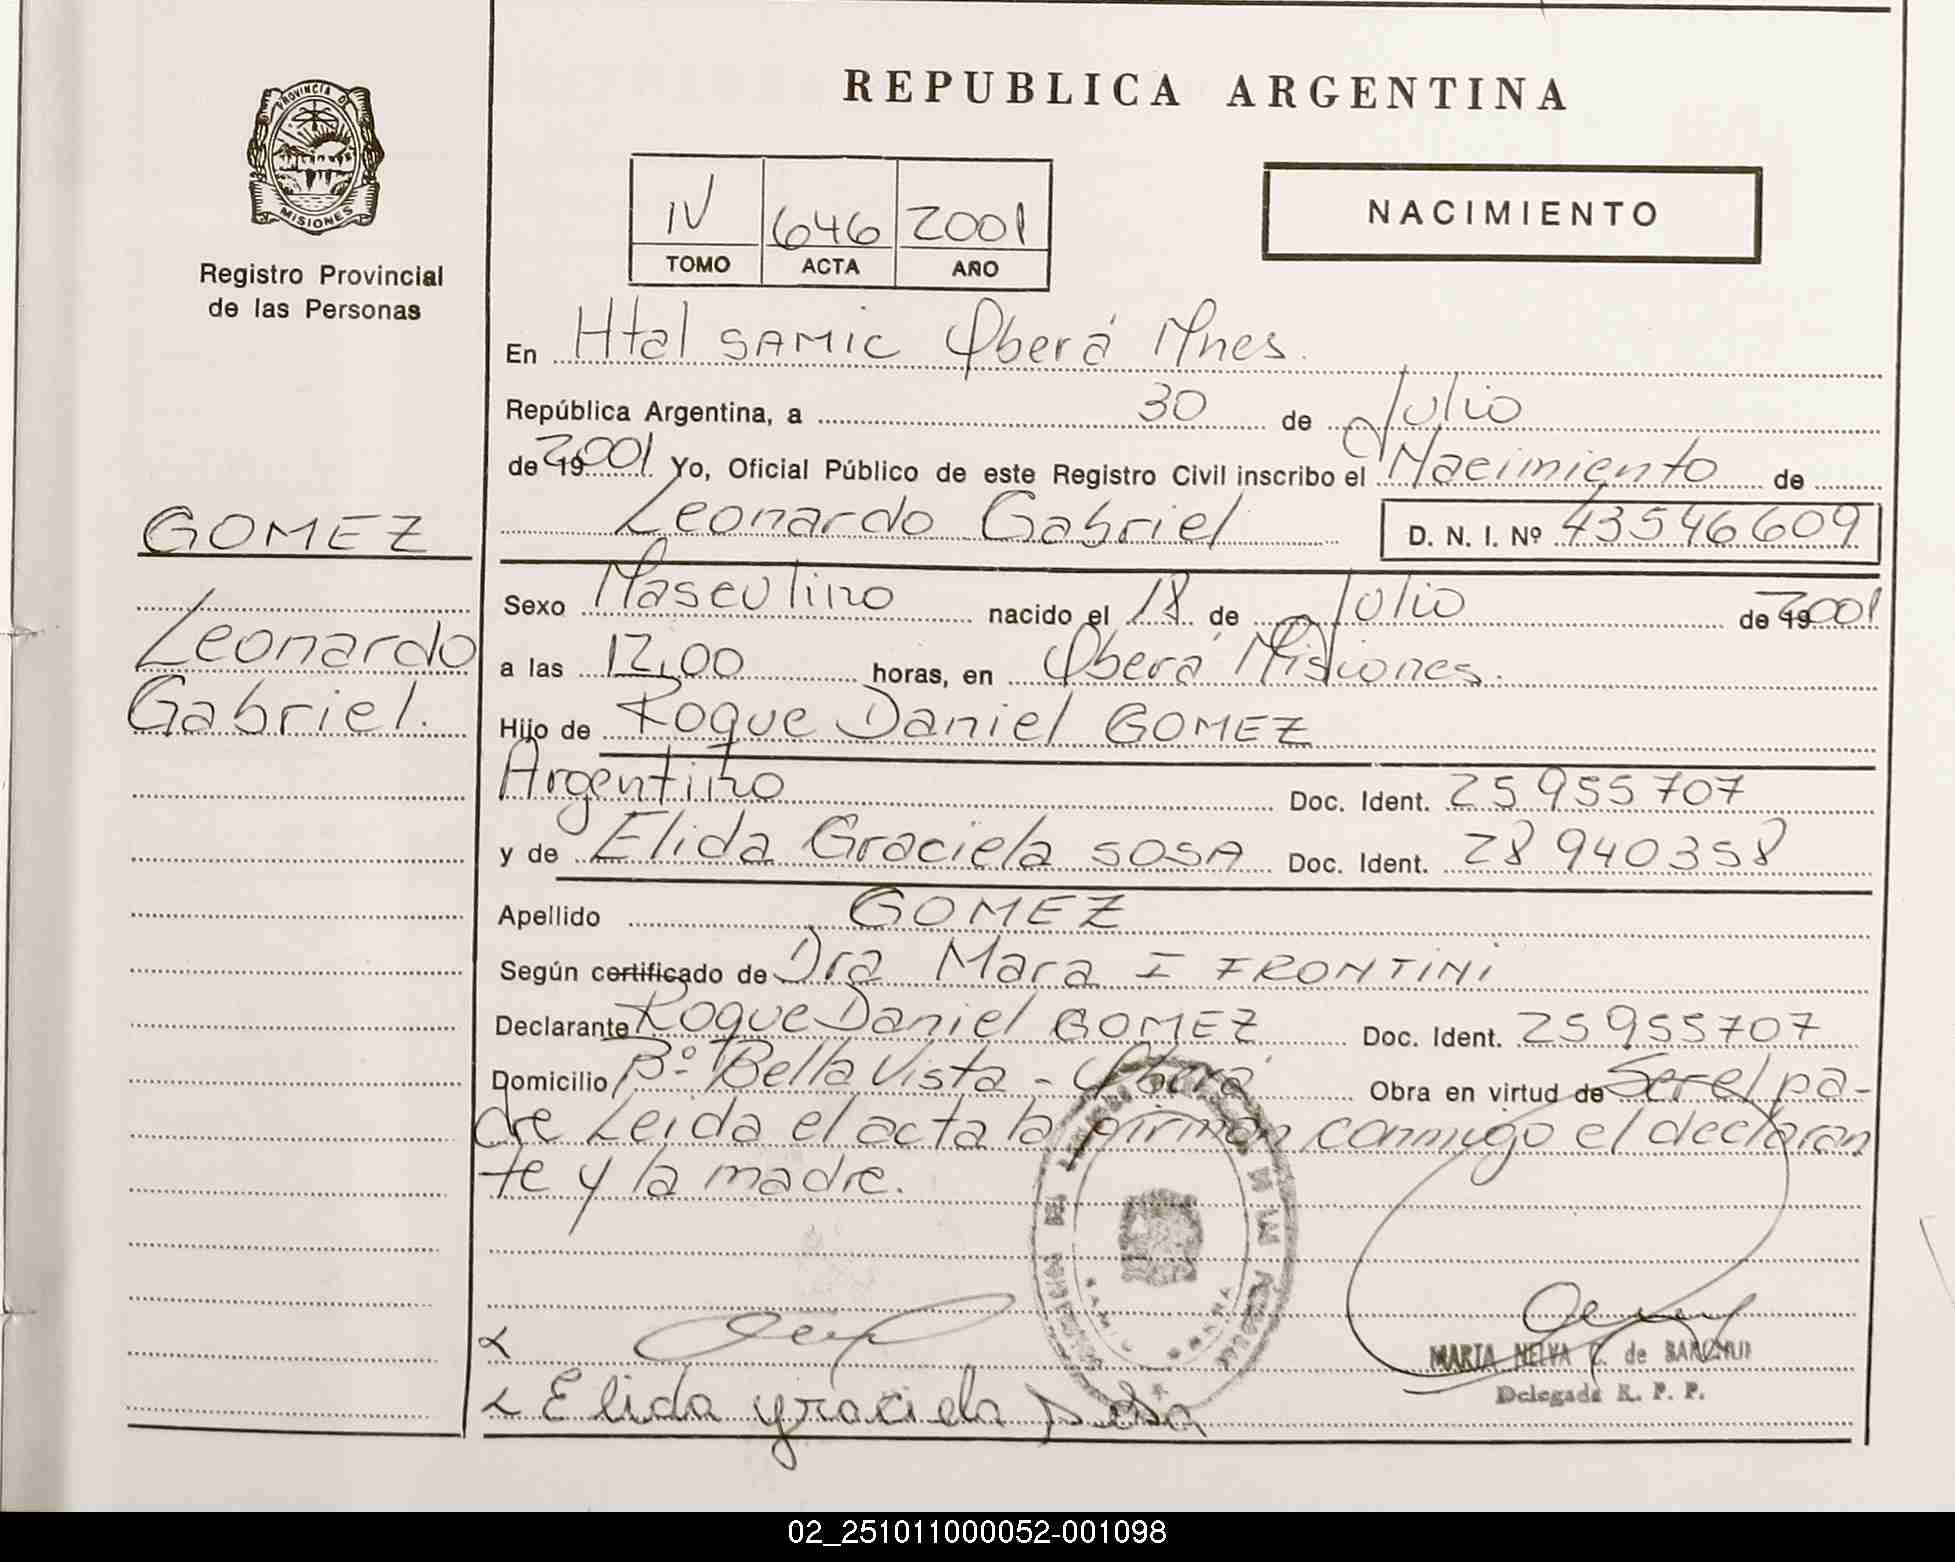 REPUBLICA ARGENTINA
PROVINCIA DE
MISIONES
Registro Provincial
de las Personas
IV 646 2001
TOMO ACTA AÑO
NACIMIENTO
En Htal SAMIC Oberá Mnes.
República Argentina, a 30 de Julio
de 19 2001 Yo, Oficial Público de este Registro Civil inscribo el Nacimiento de
Leonardo Gabriel D. N. I. Nº 43546609
GOMEZ
Leonardo
Gabriel.
Sexo Masculino nacido el 18 de Julio de 19 2001
a las 12,00 horas, en Oberá Misiones.
Hijo de Roque Daniel GOMEZ
Argentino Doc. Ident. 25955707
y de Elida Graciela SOSA Doc. Ident. 28940358
Apellido GOMEZ
Según certificado de Dra Mara I FRONTINI
Declarante Roque Daniel GOMEZ Doc. Ident. 25955707
Domicilio Bº Bella Vista - Oberá Obra en virtud de Ser el pa-
dre Leida el acta la firman conmigo el declaran
te y la madre.
Elida graciela sosa
MARTA NELVA C. de
Delegada R. P. P.
02_251011000052-001098